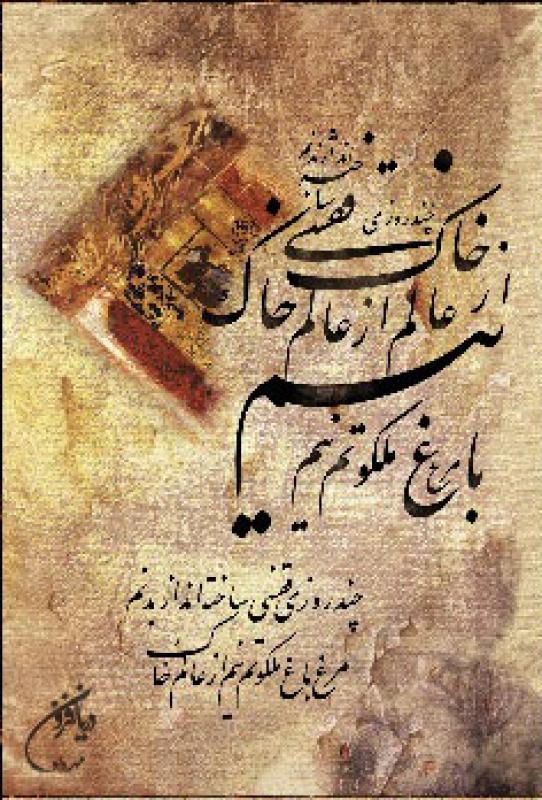 چند روزی قفسی ساخته اند از بدنم
مرغ باغ ملکوتم نیم از عالم خاک
چند روزی قفسی ساخته اند از بدنم
مرغ باغ ملکوتم نیم از عالم خاک